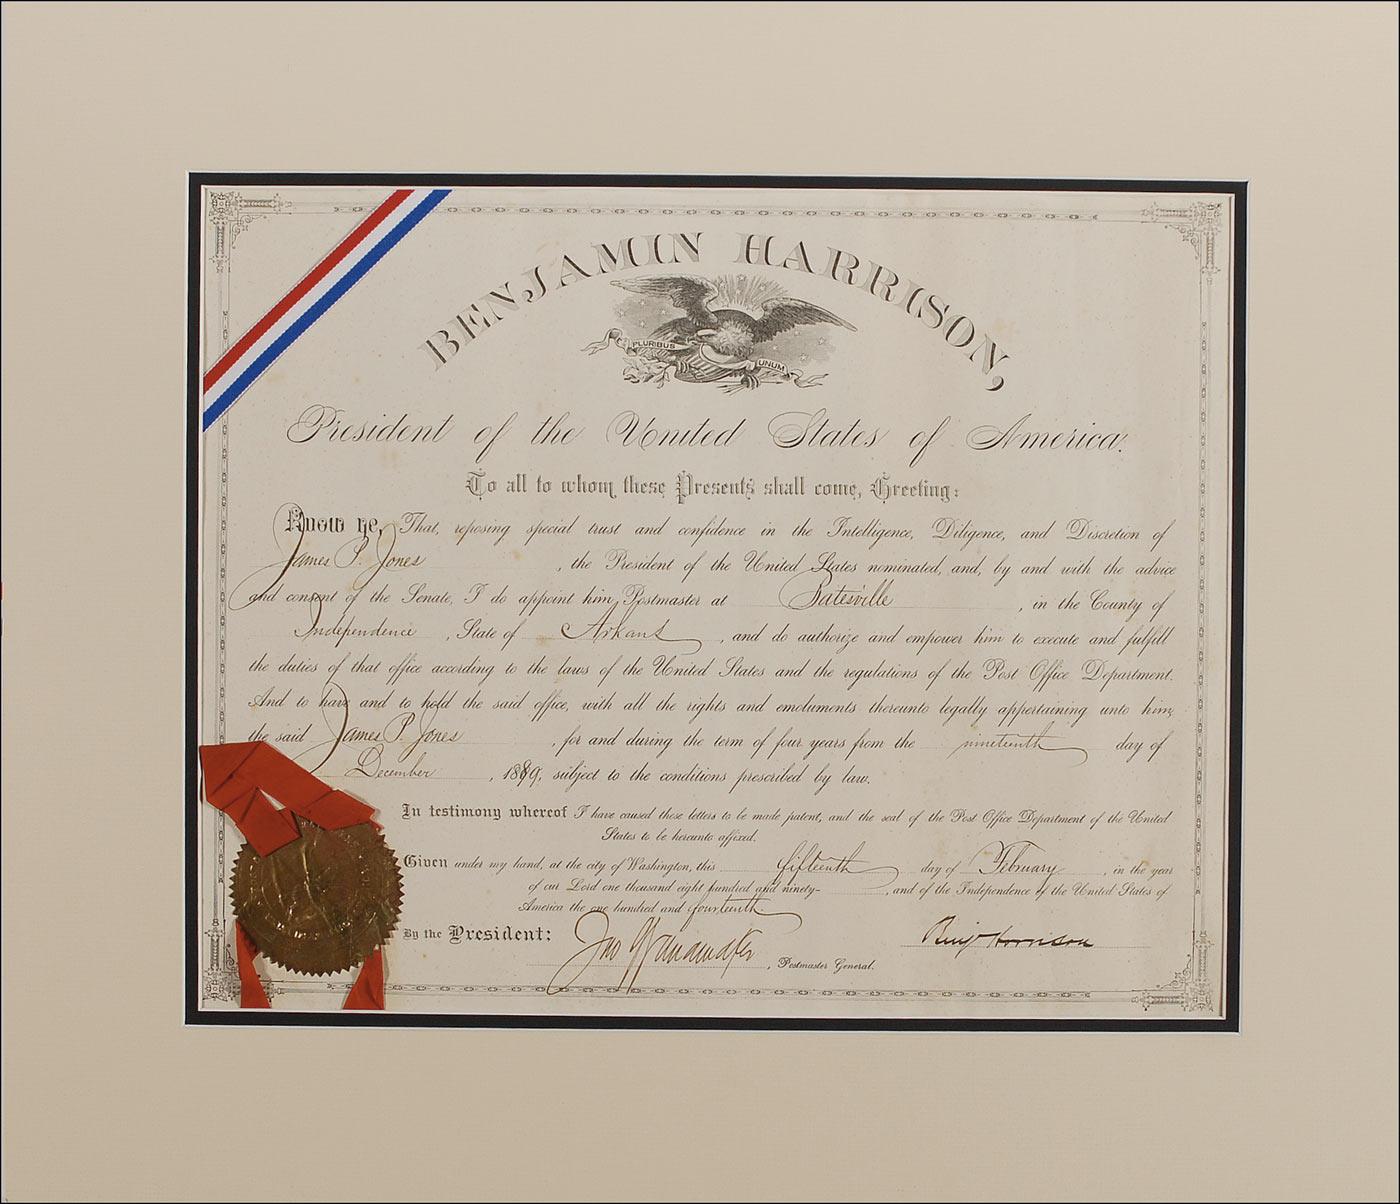 BENJAMIN HARRISON,
E PLURIBUS UNUM
President of the United States of America.
To all to whom these Presents shall come, Greeting:
Know ye, That, reposing special trust and confidence in the Intelligence, Diligence, and Discretion of
James P. Jones, the President of the United States nominated, and, by and with the advice
and consent of the Senate, I do appoint him Postmaster at Batesville, in the County of
Independence, State of Arkans, and do authorize and empower him to execute and fulfill
the duties of that office according to the laws of the United States and the regulations of the Post Office Department.
And to have and to hold the said office, with all the rights and emoluments thereunto legally appertaining unto him,
the said James P. Jones, for and during the term of four years from the nineteenth day of
December, 1889, subject to the conditions prescribed by law.
In testimony whereof I have caused these letters to be made patent, and the seal of the Post Office Department of the United
States to be hereunto affixed.
Given under my hand, at the city of Washington, this fifteenth day of February, in the year
of our Lord one thousand eight hundred and ninety-, and of the Independence of the United States of
America the one hundred and fourteenth.
By the President:
Jno Wanamaker, Postmaster General.
Benj Harrison